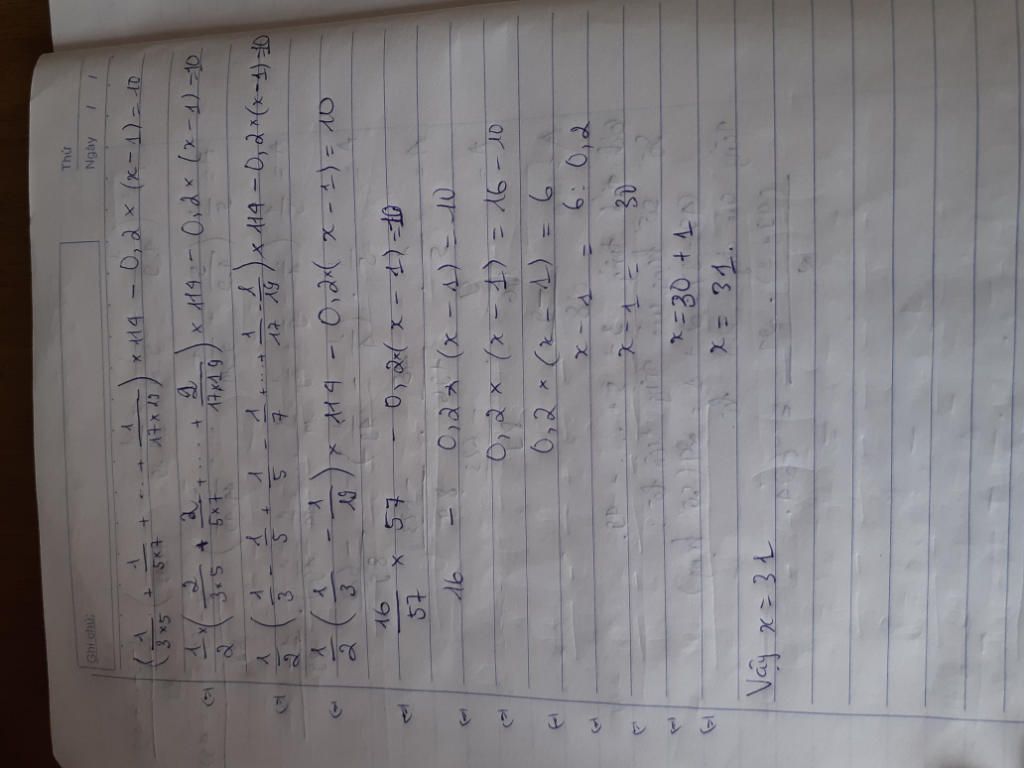 Ghi chú:
Thứ
Ngày / /
(1/3×5 + 1/5×7 + ... + 1/17×19) × 114 - 0,2 × (x - 1) = 10
(=) 1/2 × (2/3×5 + 2/5×7 + ... + 2/17×19) × 114 - 0,2 × (x - 1) = 10
(=) 1/2 (1/3 - 1/5 + 1/5 - 1/7 + ... + 1/17 - 1/19) × 114 - 0,2 × (x - 1) = 10
(=) 1/2 (1/3 - 1/19) × 114 - 0,2 × (x - 1) = 10
(=) 16/57 × 57 - 0,2 × (x - 1) = 10
(=) 16 - 0,2 × (x - 1) = 10
(=) 0,2 × (x - 1) = 16 - 10
(=) 0,2 × (x - 1) = 6
(=) x - 1 = 6 : 0,2
(=) x - 1 = 30
(=) x = 30 + 1
(=) x = 31.
Vậy x = 31